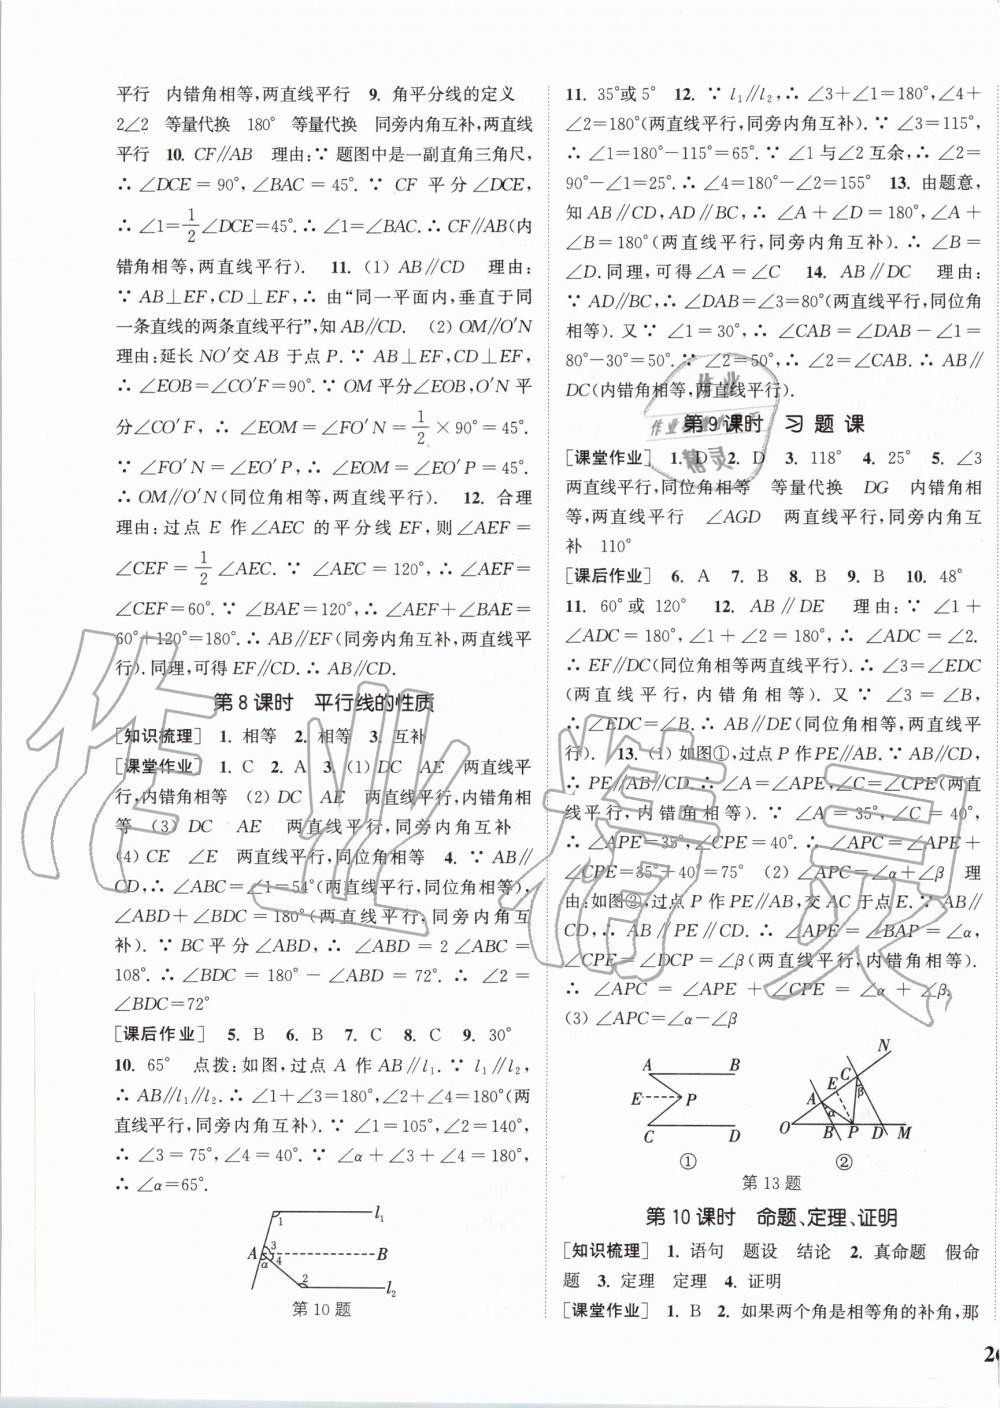 平行　内错角相等,两直线平行　9. 角平分线的定义
2∠2　等量代换　180°　等量代换　同旁内角互补,两直线
平行　10. CF∥AB　理由:∵ 题图中是一副直角三角尺,
∴ ∠DCE = 90°, ∠BAC = 45°. ∵ CF 平分∠DCE,
∴ ∠1=1/2∠DCE=45°. ∴ ∠1=∠BAC. ∴ CF∥AB(内
错角相等,两直线平行).　11. (1) AB∥CD　理由:
∵ AB⊥EF,CD⊥EF,∴ 由“同一平面内,垂直于同
一条直线的两条直线平行”,知 AB∥CD.　(2) OM∥O′N
理由:延长 NO′交 AB 于点 P. ∵ AB⊥EF,CD⊥EF,
∴ ∠EOB=∠CO′F=90°. ∵ OM 平分∠EOB,O′N 平
分∠CO′F, ∴ ∠EOM = ∠FO′N = 1/2 × 90° = 45°.
∵ ∠FO′N = ∠EO′P, ∴ ∠EOM = ∠EO′P = 45°.
∴ OM∥O′N(同位角相等,两直线平行).　12. 合理
理由:过点 E 作∠AEC 的平分线 EF,则∠AEF =
∠CEF = 1/2 ∠AEC. ∵ ∠AEC = 120°, ∴ ∠AEF =
∠CEF=60°. ∵ ∠BAE=120°,∴ ∠AEF+∠BAE=
60°+120°=180°. ∴ AB∥EF(同旁内角互补,两直线平
行).同理,可得 EF∥CD. ∴ AB∥CD.
第 8 课时　平行线的性质
[知识梳理]　1. 相等　2. 相等　3. 互补
[课堂作业]　1. C　2. A　3. (1) DC　AE　两直线平
行,内错角相等　(2) DC　AE　两直线平行,内错角相
等　(3) DC　AE　两直线平行,同旁内角互补
(4) CE　∠E　两直线平行,同位角相等　4. ∵ AB∥
CD,∴ ∠ABC=∠1=54°(两直线平行,同位角相等),
∠ABD+∠BDC=180°(两直线平行,同旁内角互
补). ∵ BC 平分∠ABD, ∴ ∠ABD = 2∠ABC =
108°. ∴ ∠BDC = 180° − ∠ABD = 72°. ∴ ∠2 =
∠BDC=72°
[课后作业]　5. B　6. B　7. C　8. C　9. 30°
10. 65°　点拨:如图,过点 A 作 AB∥l₁. ∵ l₁∥l₂,
∴ AB∥l₁∥l₂. ∴ ∠1+∠3=180°,∠2+∠4=180°(两
直线平行,同旁内角互补). ∵ ∠1=105°,∠2=140°,
∴ ∠3 = 75°, ∠4 = 40°. ∵ ∠α + ∠3 + ∠4 = 180°,
∴ ∠α=65°.
1　l₁
A　3　4　α　B
2　l₂
第 10 题
11. 35°或 5°　12. ∵ l₁∥l₂,∴ ∠3+∠1=180°,∠4+
∠2=180°(两直线平行,同旁内角互补). ∵ ∠3=115°,
∴ ∠1=180°−115°=65°. ∵ ∠1 与∠2 互余,∴ ∠2=
90°−∠1=25°. ∴ ∠4=180°−∠2=155°　13. 由题意,
知 AB∥CD,AD∥BC,∴ ∠A+∠D=180°,∠A+
∠B=180°(两直线平行,同旁内角互补). ∴ ∠B=
∠D.同理,可得∠A=∠C　14. AB∥DC　理由:
∵ AD∥BC,∴ ∠DAB=∠3=80°(两直线平行,同位角
相等).又∵ ∠1=30°,∴ ∠CAB=∠DAB−∠1=
80°−30°=50°. ∵ ∠2=50°,∴ ∠2=∠CAB. ∴ AB∥
DC(内错角相等,两直线平行).
第 9 课时　习 题 课
[课堂作业]　1. D　2. D　3. 118°　4. 25°　5. ∠3
两直线平行,同位角相等　等量代换　DG　内错角相
等,两直线平行　∠AGD　两直线平行,同旁内角互
补　110°
[课后作业]　6. A　7. B　8. B　9. B　10. 48°
11. 60°或 120°　12. AB∥DE　理由:∵ ∠1+
∠ADC = 180°,∠1+∠2=180°,∴ ∠ADC=∠2.
∴ EF∥DC(同位角相等两直线平行). ∴ ∠3=∠EDC
(两直线平行,内错角相等).又∵ ∠3=∠B,
∴ ∠EDC=∠B. ∴ AB∥DE(同位角相等,两直线平
行).　13. (1) 如图①,过点 P 作 PE∥AB. ∵ AB∥CD,
∴ PE∥AB∥CD. ∴ ∠A=∠APE,∠C=∠CPE(两直
线平行,内错角相等). ∵ ∠A=35°,∠C=40°,
∴ ∠APE=35°,∠CPE=40°. ∴ ∠APC=∠APE+
∠CPE=35°+40°=75°　(2) ∠APC=∠α+∠β　理
由:如图②,过点 P 作 PE∥AB,交 AC 于点 E. ∵ AB∥
CD,∴ AB∥PE∥CD. ∴ ∠APE=∠BAP=∠α,
∠CPE=∠DCP=∠β(两直线平行,内错角相等).
∴ ∠APC = ∠APE + ∠CPE = ∠α + ∠β.
(3) ∠APC=∠α−∠β
A　B
E　P
C　D
①
N
C
E　β
A　α
O　B　P　D　M
②
第 13 题
第 10 课时　命题、定理、证明
[知识梳理]　1. 语句　题设　结论　2. 真命题　假命
题　3. 定理　定理　4. 证明
[课堂作业]　1. B　2. 如果两个角是相等角的补角,那
作业精灵